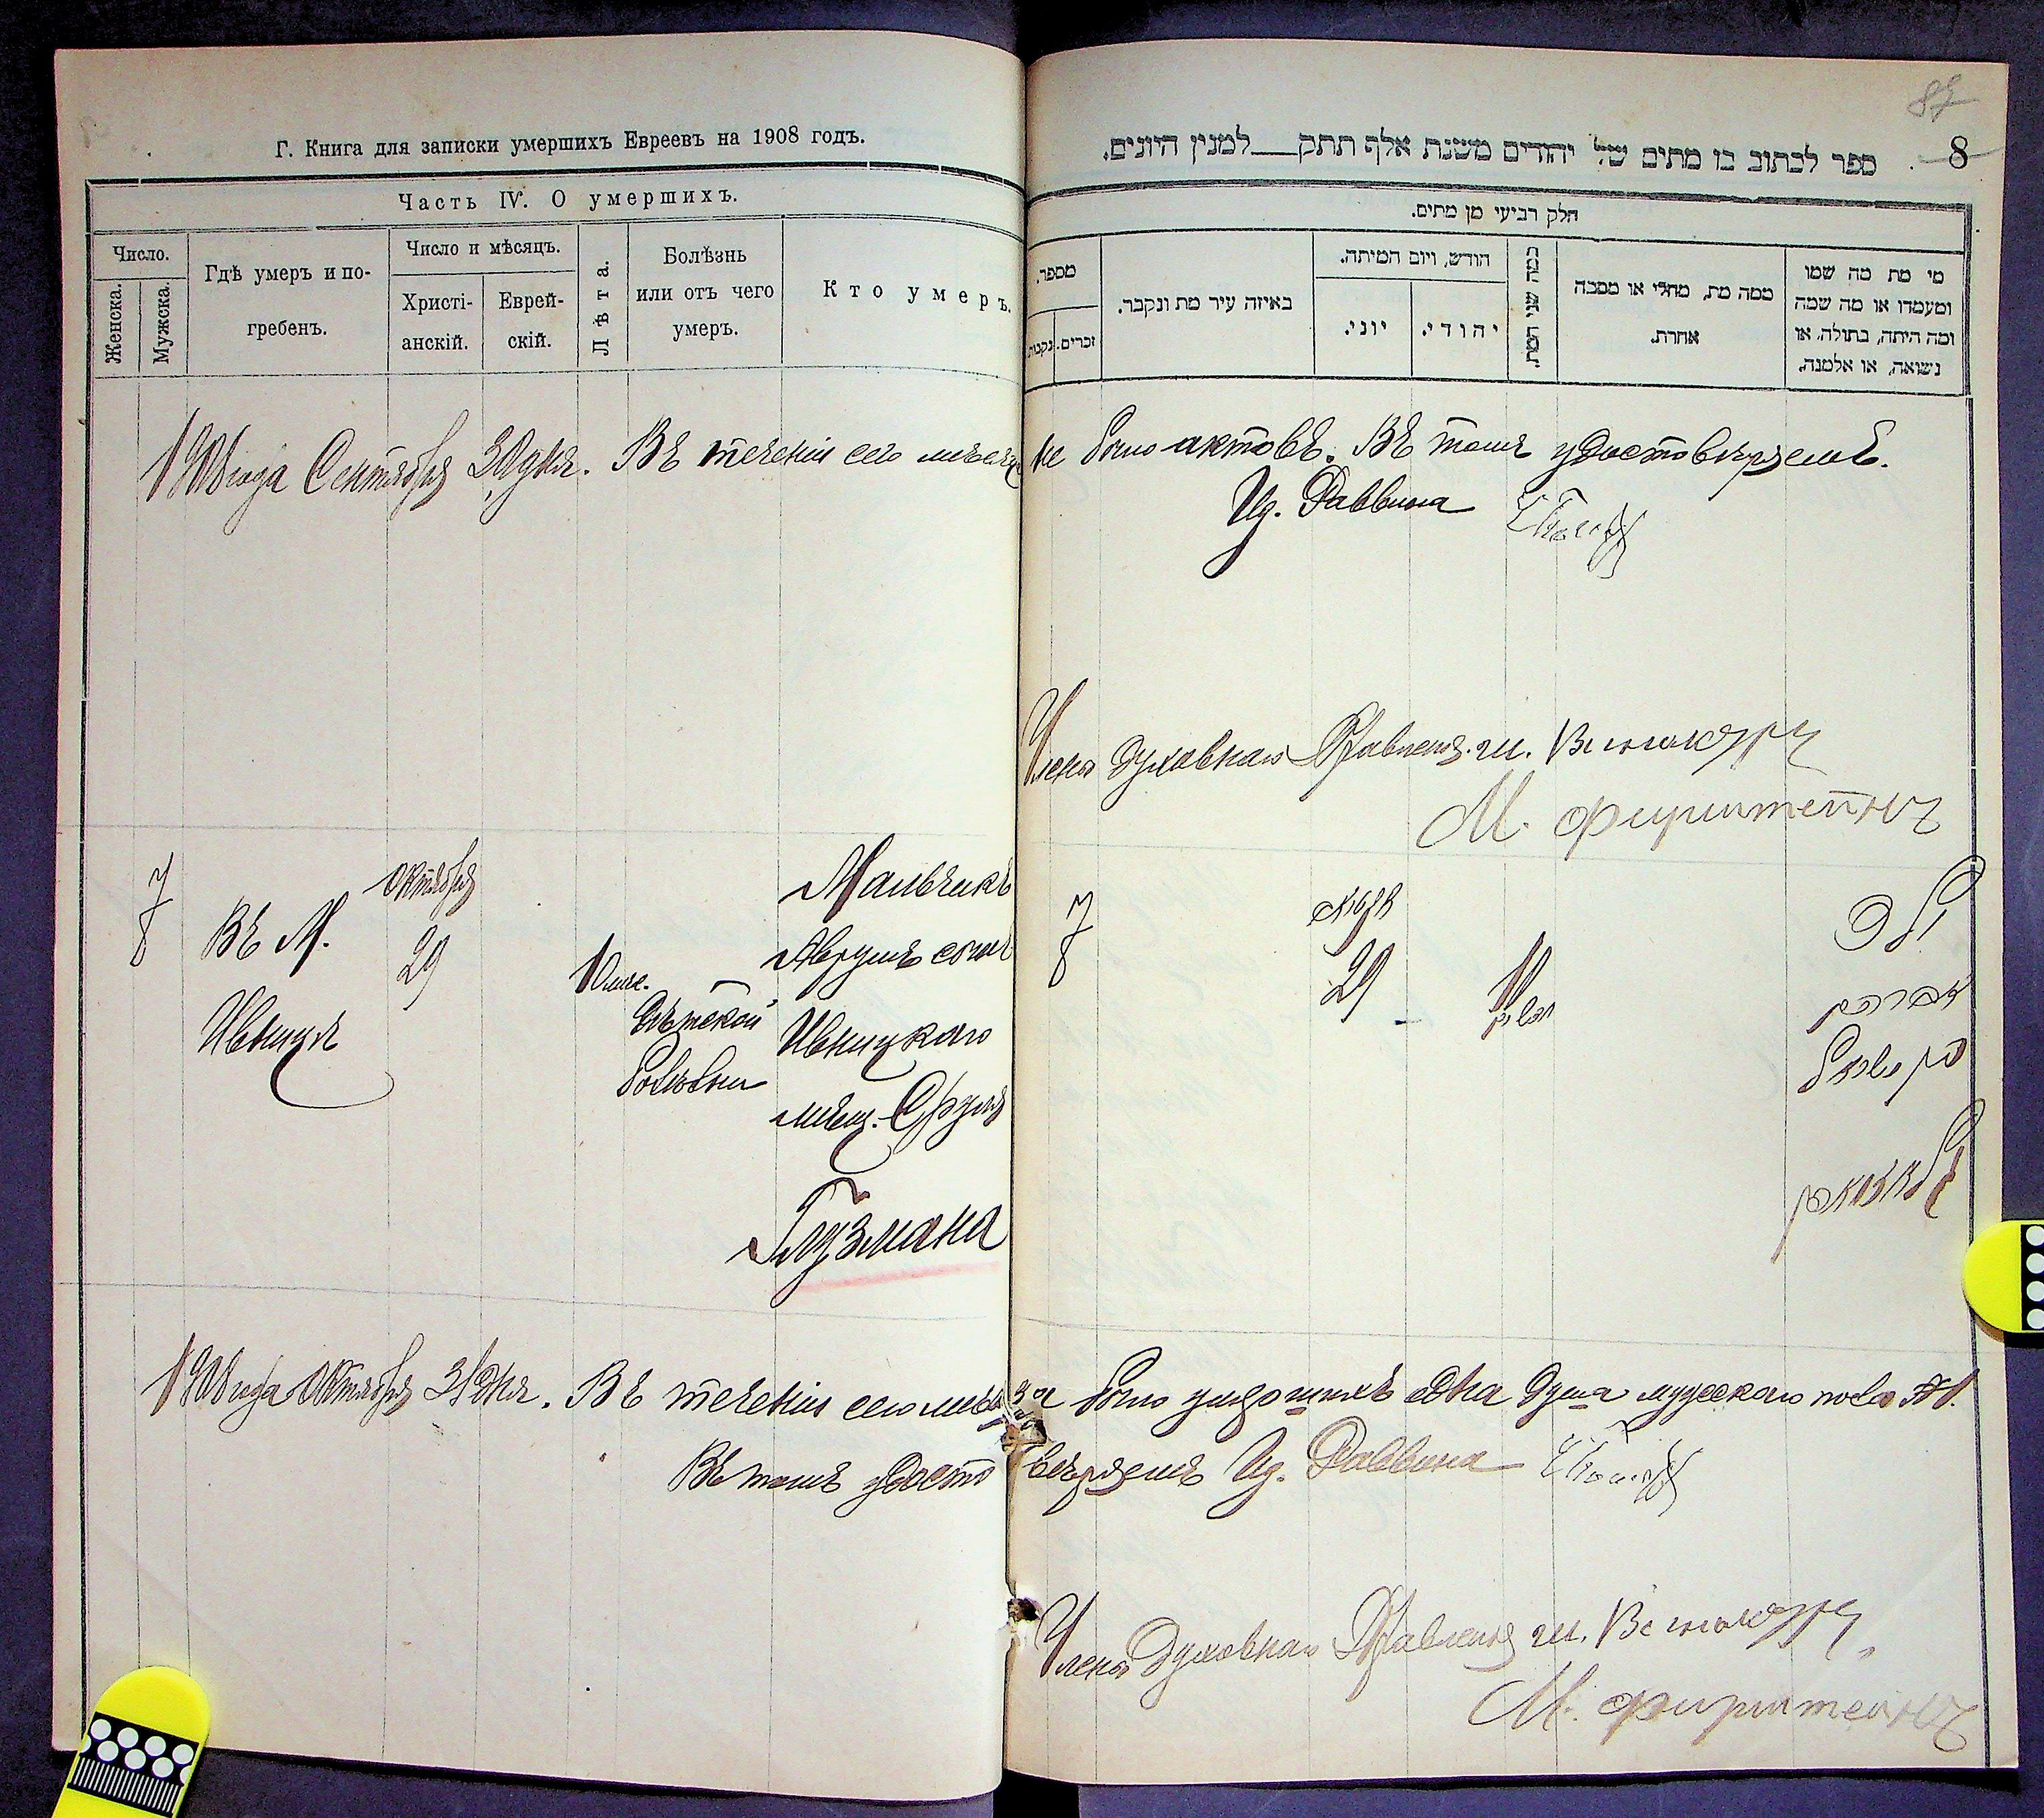 Г. Книга для записки умершихъ Евреевъ на 1908 годъ.
Часть IV. О умершихъ.
Число.
Женска.
Мужска.
Гдѣ умеръ и по-
гребенъ.
Число и мѣсяцъ.
Христі-
анскій.
Еврей-
скій.
Лѣта.
Болѣзнь
или отъ чего
умеръ.
Кто умеръ.
8
ספר לכתוב בו מתים של יהודים משנת אלף תתק למנין היונים.
חלק רביעי מן מתים.
מספר.
זכרים.
נקבות
באיזה עיר מת ונקבר.
חודש, ויום המיתה.
יוני.
יהודי.
כמה שני המת.
ממה מת, מחלי או מסבה
אחרת.
מי מת מה שמו
ומעמדו או מה שמה
ומה היתה, בתולה, או
נשואה, או אלמנה.
1908 года Сентября 30 дня. Въ теченіи сего мѣсяца не было актовъ. Въ томъ удостовѣряемъ.
И д. Раввина
Члены Духовнаго Правленія
7
Въ М.
Ивницѣ
Октября
29
10 мѣс.
Дѣтской
болѣзни
Мальчикъ
Аврумъ сынъ
Ивницкаго
мѣщ. Сруля
Глузмана
7
29
10
ילד
אברהם
בן ישראל
גלוזמאן
1908 года Октября 31 дня. Въ теченіи сего мѣсяца было умершихъ одна душа мужескаго пола №1.
Въ томъ удостовѣряемъ И д. Раввина
Члены Духовнаго Правленія